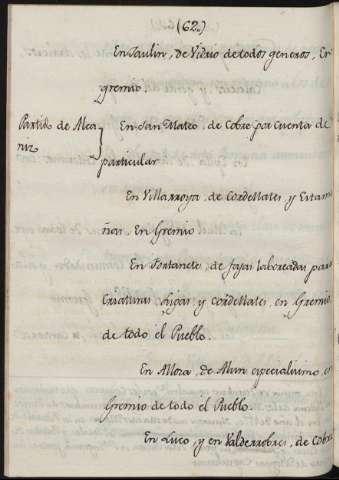 (62.)
En Paulin, de Vidrio de todos generos, En
gremio.
Partid.o de Alca
niz
En San Mateo, de Cobre por cuenta de
particular
En Villarroya, de Cordellates, y Estame
ñas, En Gremio
En Fortanete, de fajas laboreadas para
Criaturas, ligas, y Cordellates, en Gremio
de todo el Pueblo.
En Alloza, de Alun especialisimo, en
Gremio de todo el Pueblo.
En Luco, y en Valderrobres, de Cobre